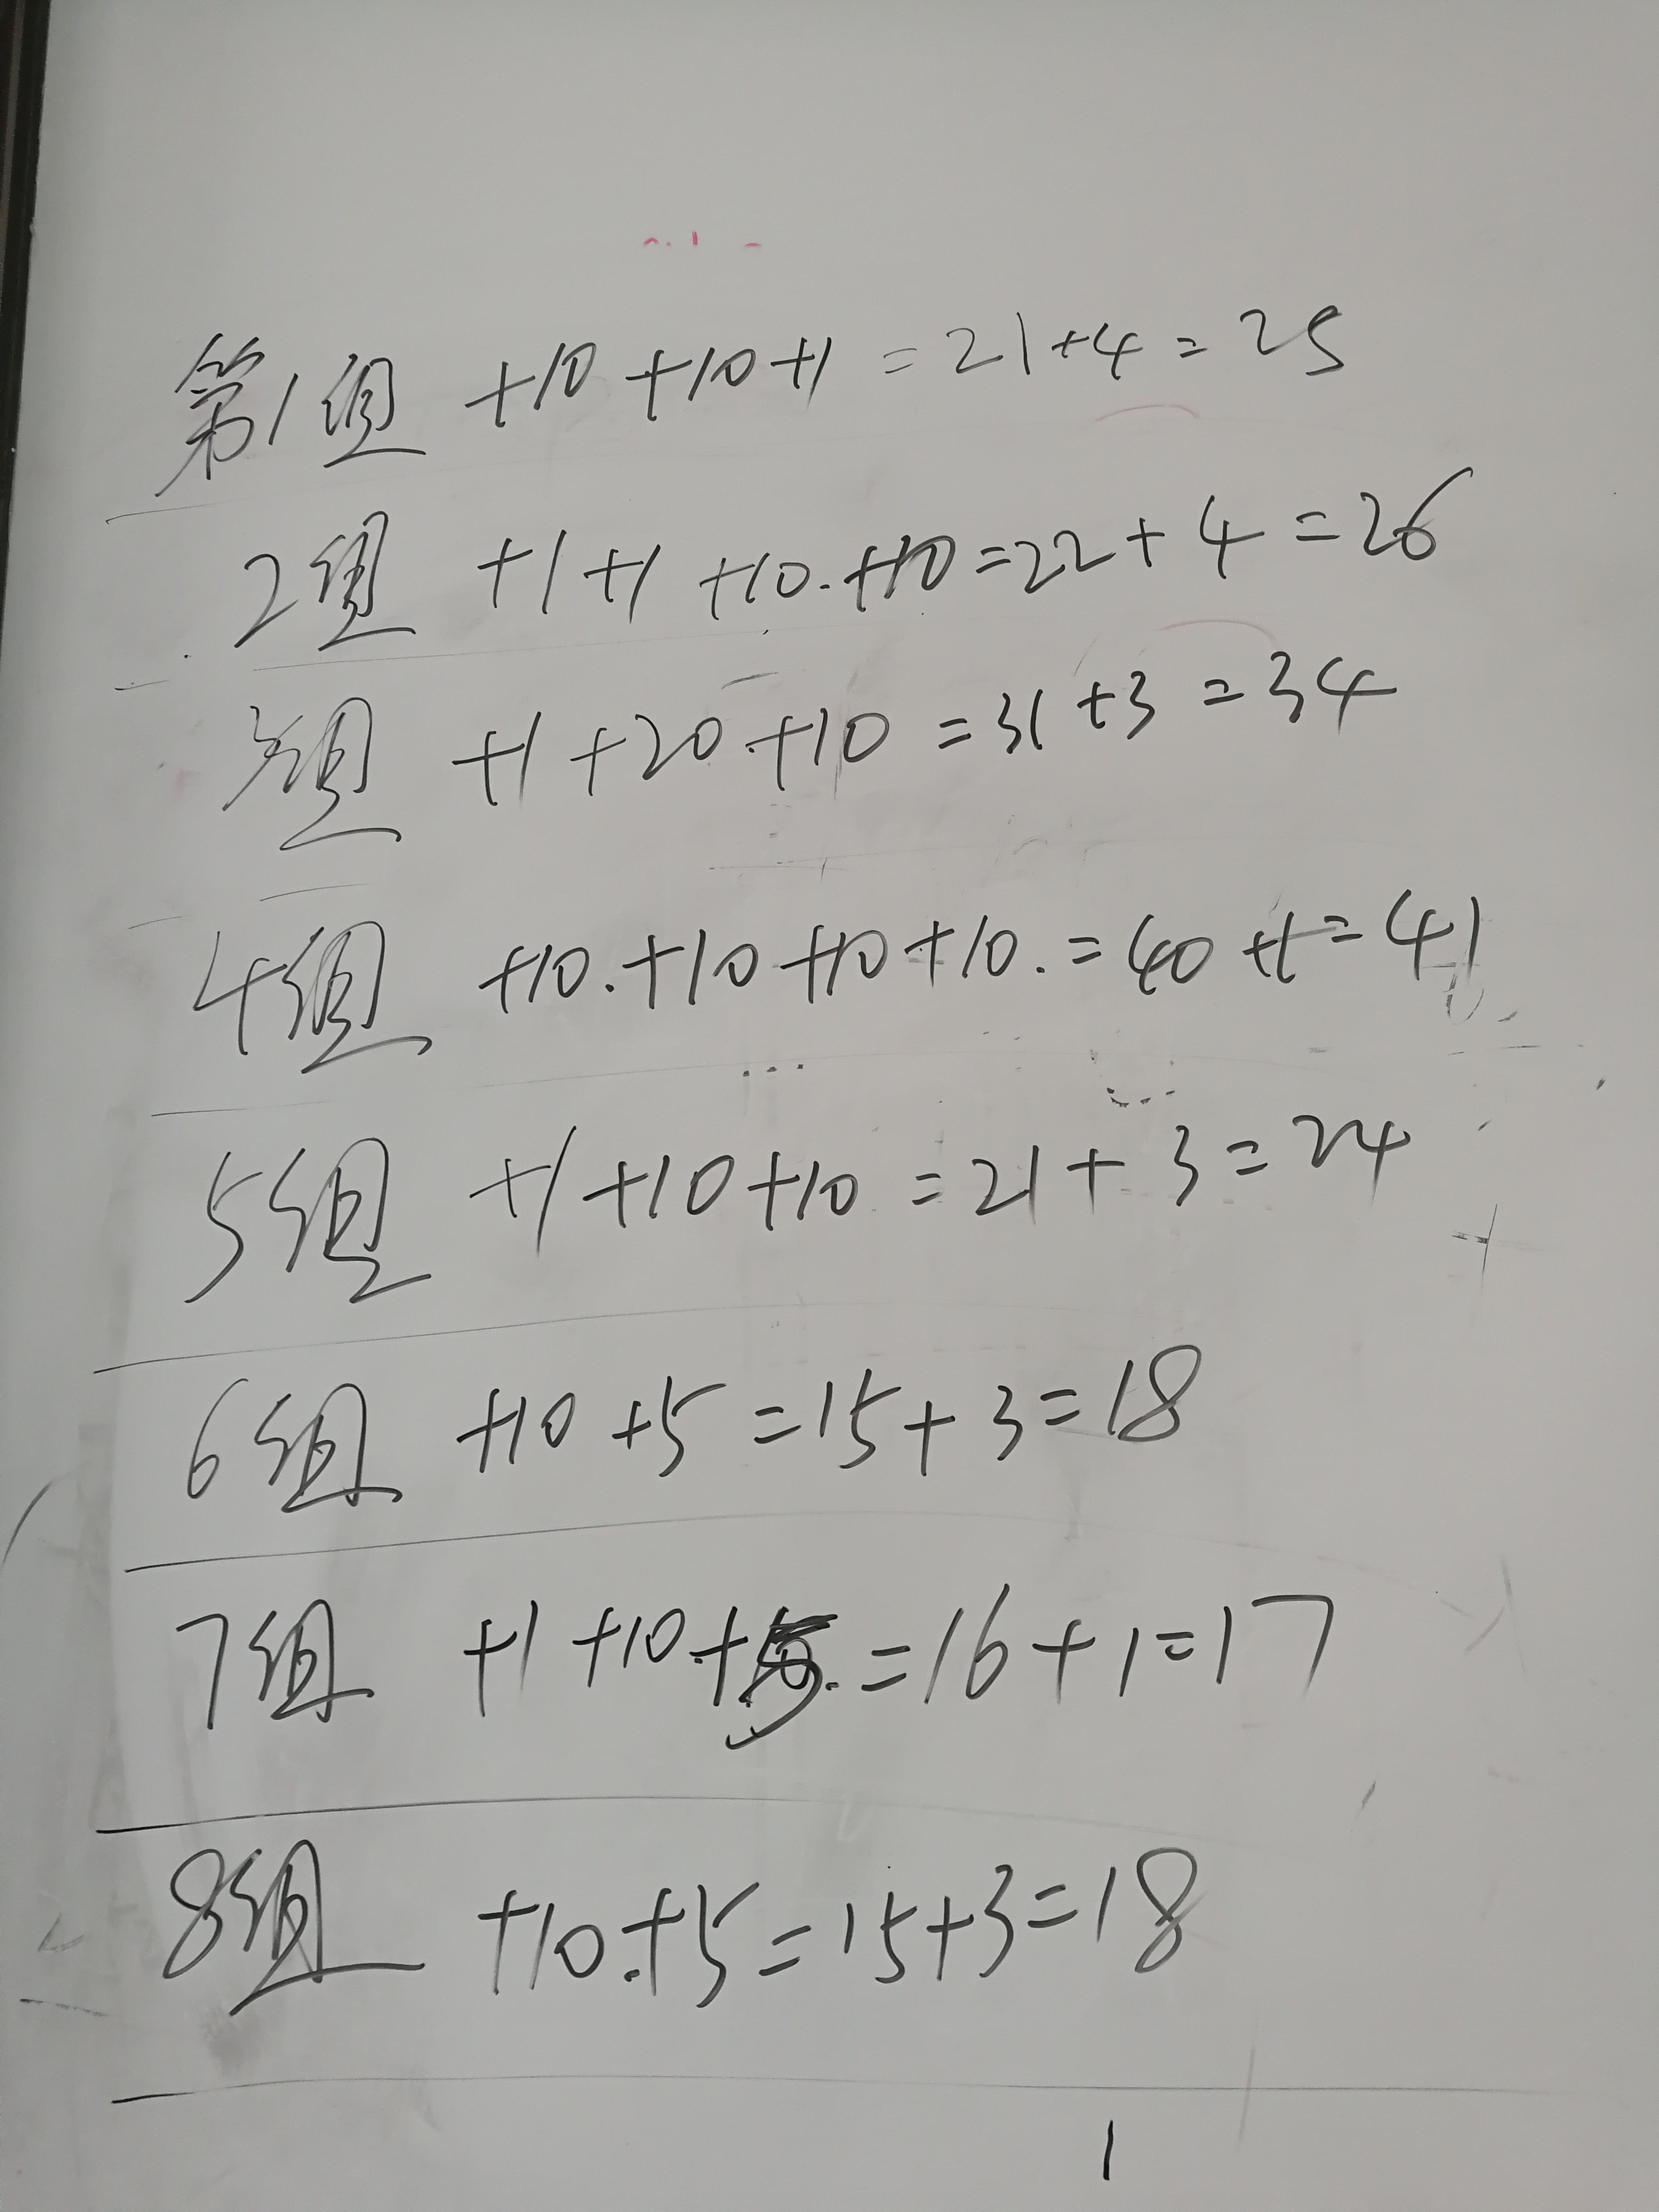 第1组 +10 +10 +1 = 21+4 = 25
2组 +1 +1 +10.+10=22+4=26
3组 +1 +20.+10 =31+3=34
4组 +10.+10+10+10.=40+1=41
5组 +1 +10+10 =21+3=24
6组 +10 +5=15+3=18
7组 +1 +10.+5.=16+1=17
8组 +10.+5=15+3=18
1